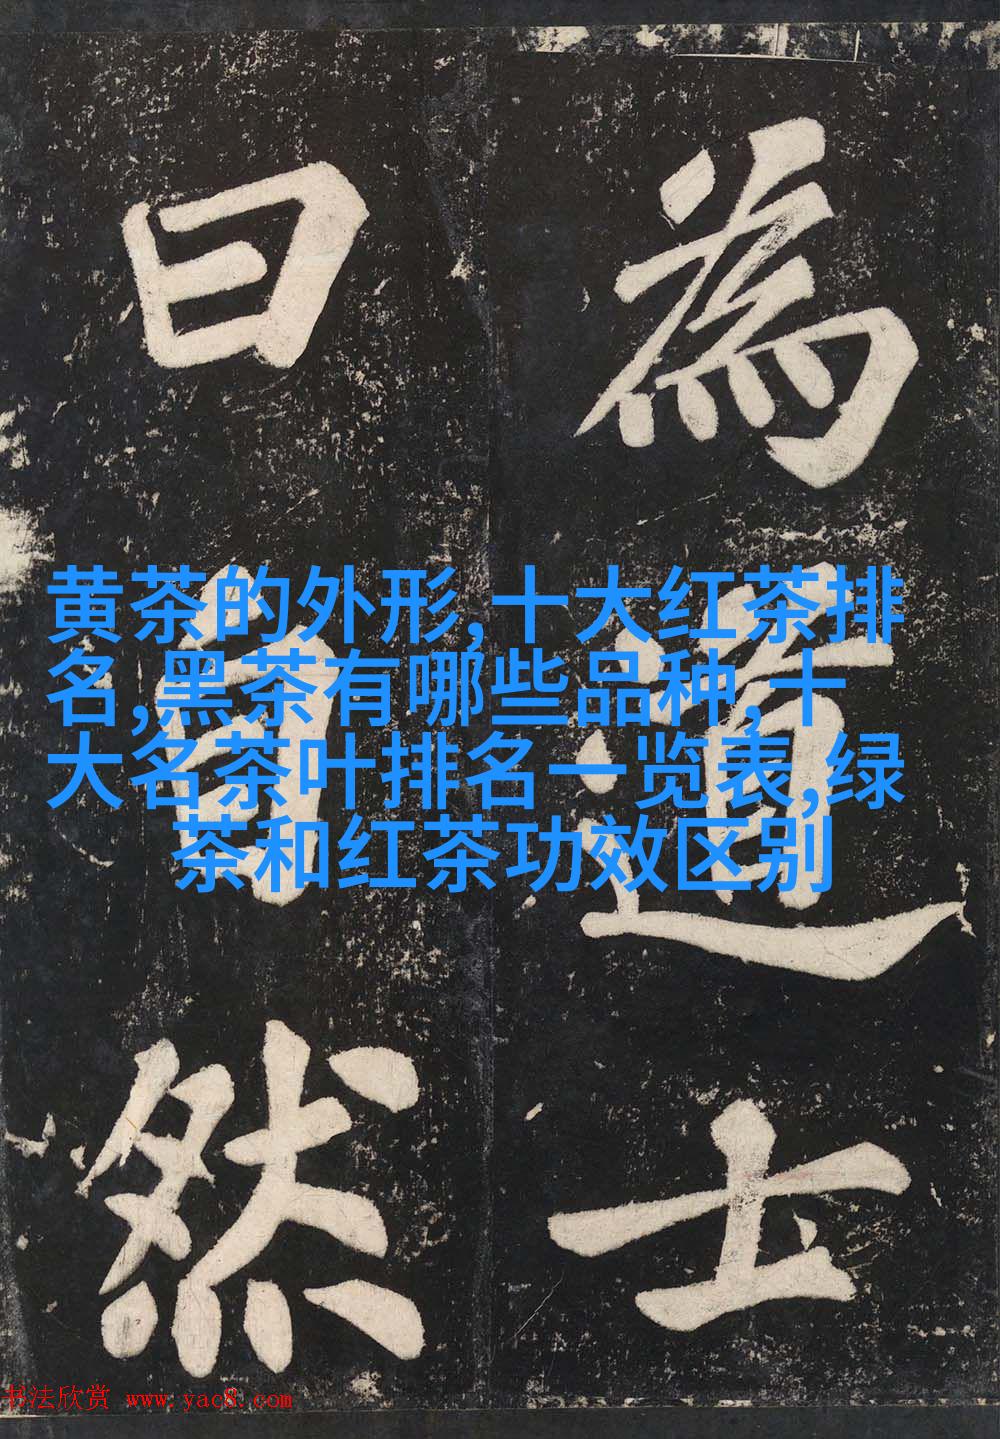 為道士
曰自然
黄茶的外形,十大红茶排
名,黑茶有哪些品种,十
大名茶叶排名一览表,绿
茶和红茶功效区别
书法欣赏 www.yac8.com